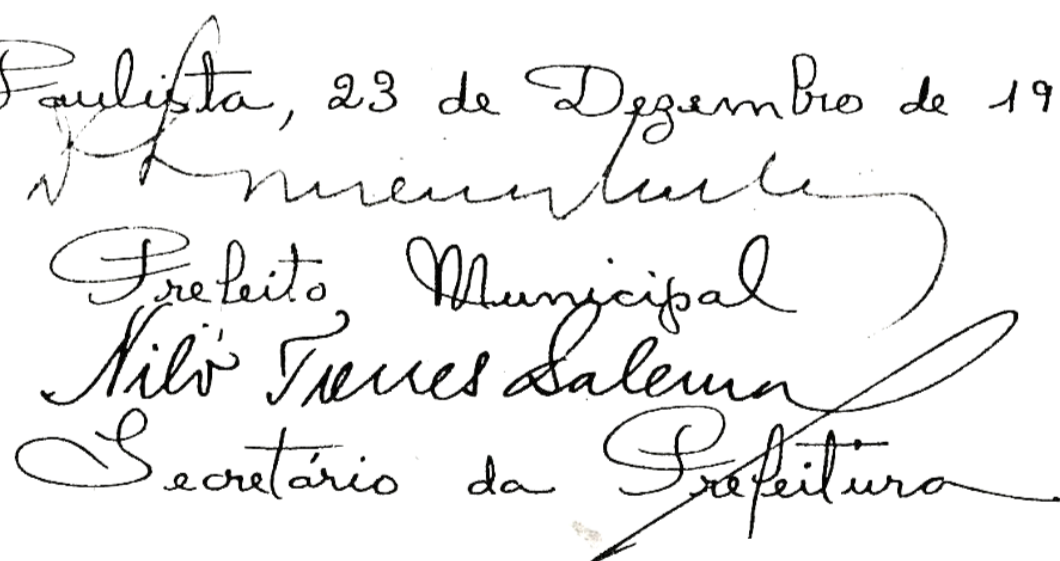 Paulista, 23 de Dezembro de 19
Prefeito Municipal
Nilo Torres Salerno
Secretário da Prefeitura